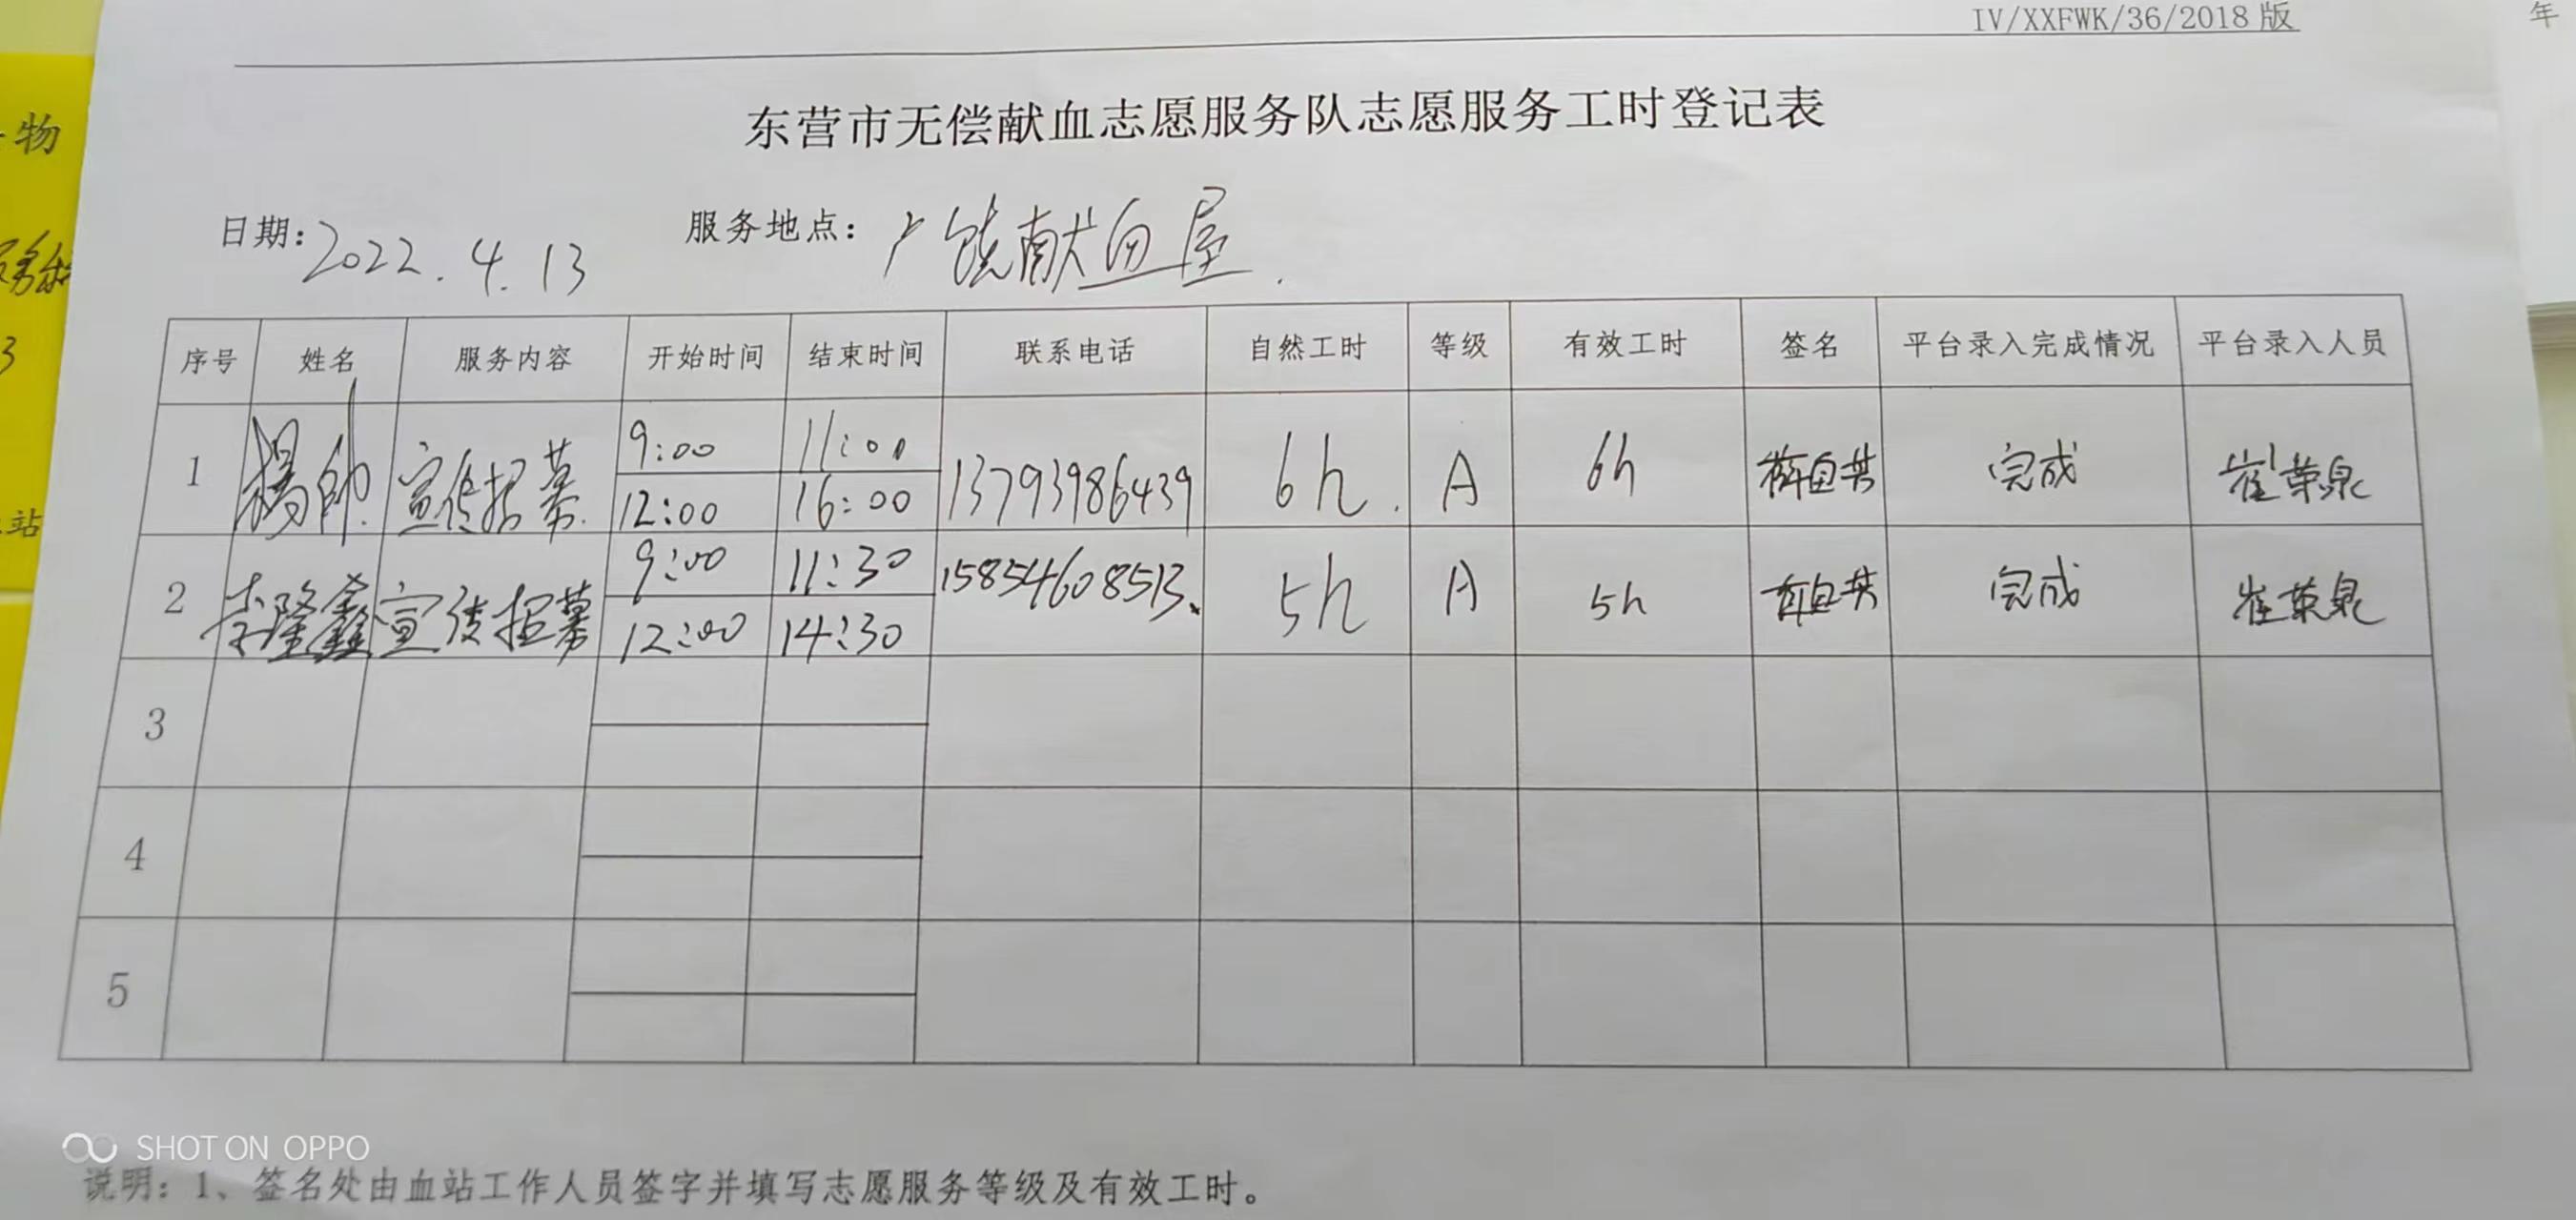 IV/XXFWK/36/2018版
年
东营市无偿献血志愿服务队志愿服务工时登记表
物
日期: 2022.4.13 服务地点: 广饶献血屋.
3
站
序号 姓名 服务内容 开始时间 结束时间 联系电话 自然工时 等级 有效工时 签名 平台录入完成情况 平台录入人员
1 杨帅 宣传招募 9:00 11:00 13793986439 6h. A 6h 完成 崔荣泉
12:00 16:00
2 李隆鑫 宣传招募 9:00 11:30 15854608513. 5h A 5h 完成 崔荣泉
12:00 14:30
3
4
5
SHOT ON OPPO
说明: 1、签名处由血站工作人员签字并填写志愿服务等级及有效工时。